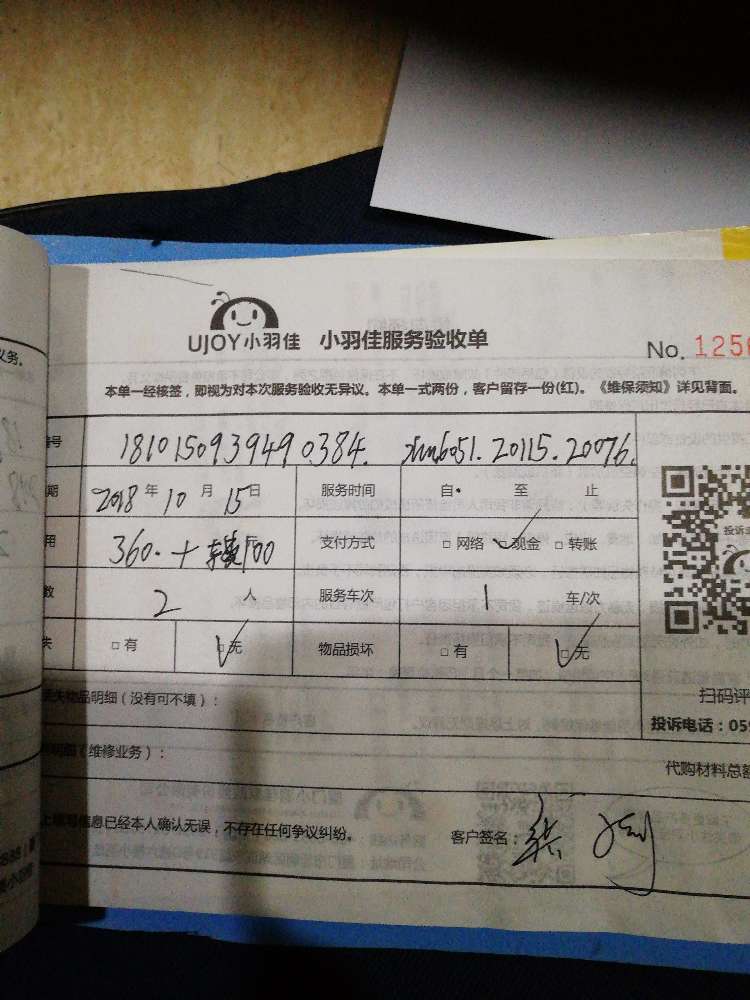 义务。
UJOY小羽佳 小羽佳服务验收单
No. 1256
本单一经接签，即视为对本次服务验收无异议。本单一式两份，客户留存一份(红)。《维保须知》详见背面。
号 181015093949 0384.
期 2018 年 10 月 15 日 服务时间 自 至 止
用 360. + 100 元 支付方式 □ 网络 □ 现金 □ 转账
数 2 人 服务车次 1 车/次
失 □ 有 □ 无 物品损坏 □ 有 □ 无
丢失物品明细（没有可不填）：
扫码评
投诉电话：059
明细（维修业务）：
代购材料总额
上填写信息已经本人确认无误，不存在任何争议纠纷。 客户签名：